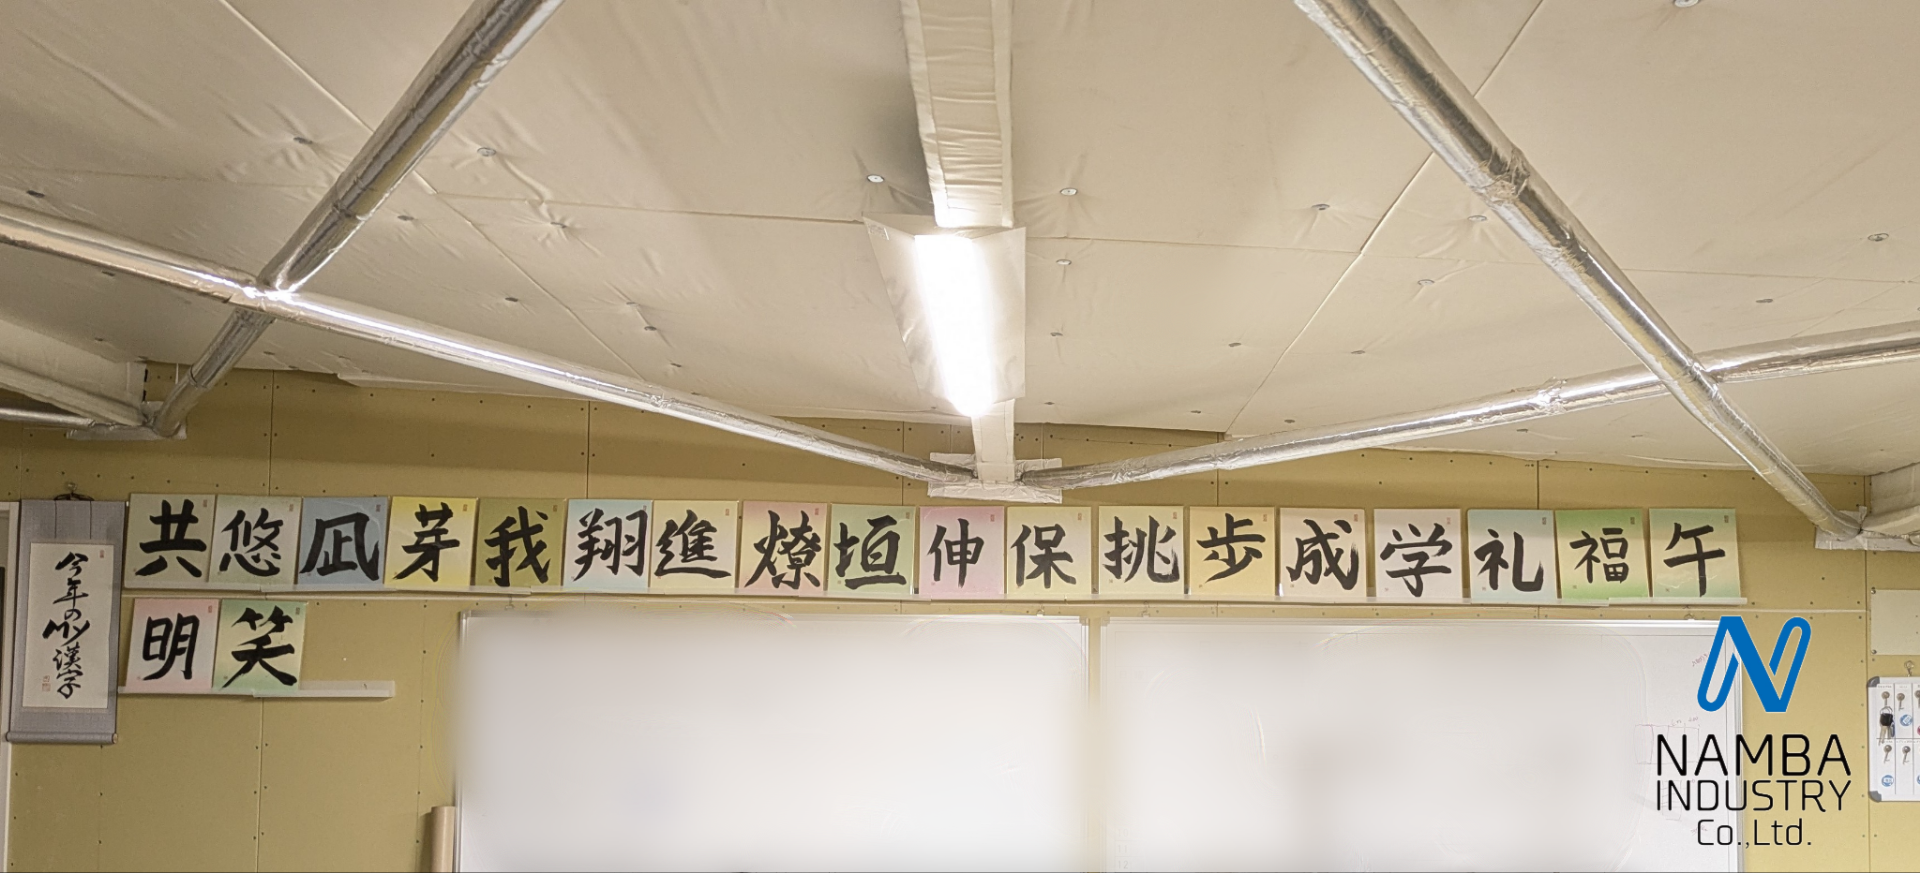 今年のMy漢字
共悠凪芽我翔進燎垣伸保挑歩成学礼福午
明笑
NAMBA
INDUSTRY
Co.,Ltd.